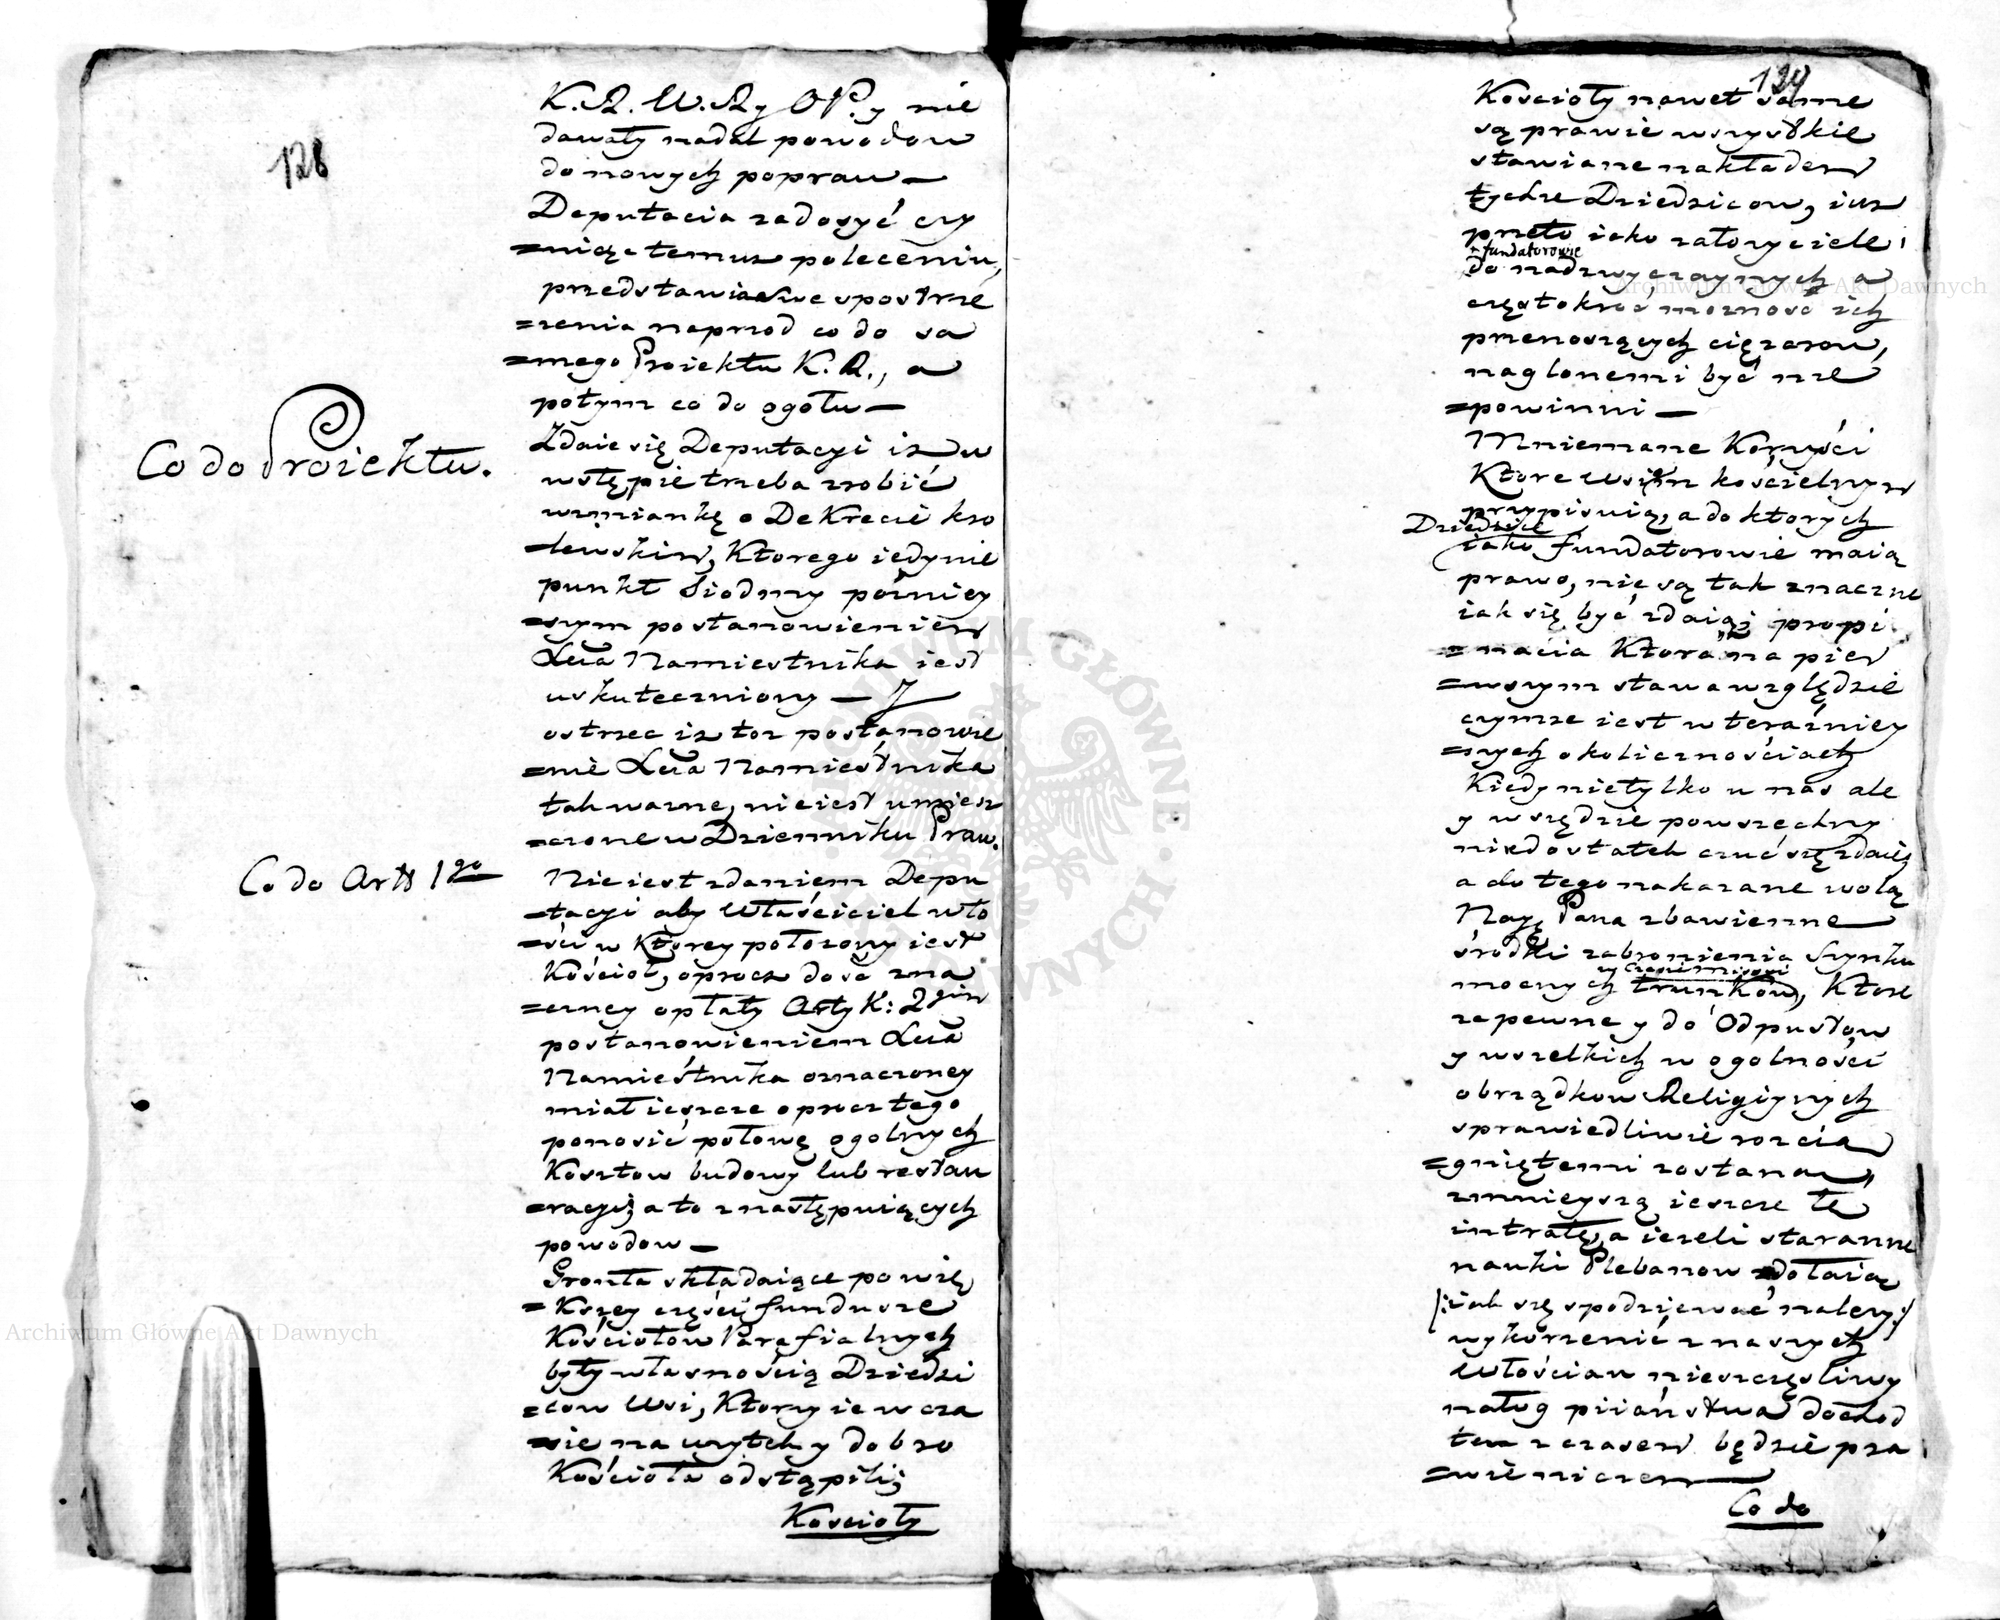 128
K. R. W. R y OP. y nie
dawały nadal powodow
do nowych popraw —
Deputacia zadosyć czy
=niąc temuz poleceniu,
przedstawia swe spostrze
=zenia naprzod co do sa
=mego Proiektu K. R., a
potym co do ogołu —
Co do Proiektu.
Zdaie się Deputacyi iz w
wstępie trzeba zrobić
wzmiankę o Dekrecie kro
=lewskim, Ktorego iedynie
punkt Siodmy pozniey
=szym postanowieniem
Xcia Namiestnika iest
uskuteczniony — J
ostrzec iz toz postanowie
=nie Xcia Namiestnika
tak wazne, nie iest umiesz
=czone w Dzienniku Praw.
Co do Artł 1go
Nie iest zdaniem Depu
=tacyi aby Właściciel wło
=ści w Ktorey położony iest
Kościoł, oprocz dość zna
=czney opłaty Artyk: 2gim
postanowieniem Xcia
Namieśtnika oznaczoney
miał ieszcze oprocz tego
ponosić połowę ogolnych
Kosztow budowy lub restau
=racyi, a to z następuiących
powodow —
Gronta składaiące powię
=Kszey części fundusze
Kościołow Parafialnych
były własnością Dziedzi
=cow Wsi, Ktorzy ie w cza
=sie na użytek y dobro
Kościoła odstąpili;
Koscioły
129
Koscioły nawet same
są prawie wszystkie
stawiane nakładem
tychze Dziedzicow, iuz
przeto iako założyciele i
fundatorowie
do nadzwyczaynych a
częstokroć mozność ich
przenoszących cięzarow,
naglonemi być nie
=powinni —
Mniemane Korzyści
Ktore Wsiom kościelnym
przypisuią, a do ktorych
Dziedzice
iako fundatorowie maią
prawo, nie są tak znaczne
iak się być zdaią; propi
=nacia Ktora na pier
=wszym stawa względzie
czymze iest w teraźniey
=szych okolicznościach
Kiedy nietylko u nas ale
y wszędzie powszechny
niedostatek czuć się zdaie,
a do tego nakazane wolą
Nayę Pana zbawienne
środki zabronienia Szynku
mocnych trunkow, Ktore
zapewne y do Odpustow
y wszelkich w ogolności
obrządkow Religiynych
sprawiedliwie rozcia
=gniętemi zostaną,
zmnieyszą ieszcze tę
intratę, a iezeli staranne
nauki Plebanow zdołaią
/: iak się spodziewać nalezy :/
wykorzenić z naszych
Włościan nieszczęsliwy
nałog piiaństwa dochod
ten z czasem będzie pra
=wie niczem —
Co do
Archiwum Główne Akt Dawnych
Archiwum Główne Akt Dawnych
ARCHIWUM GŁÓWNE AKT DAWNYCH